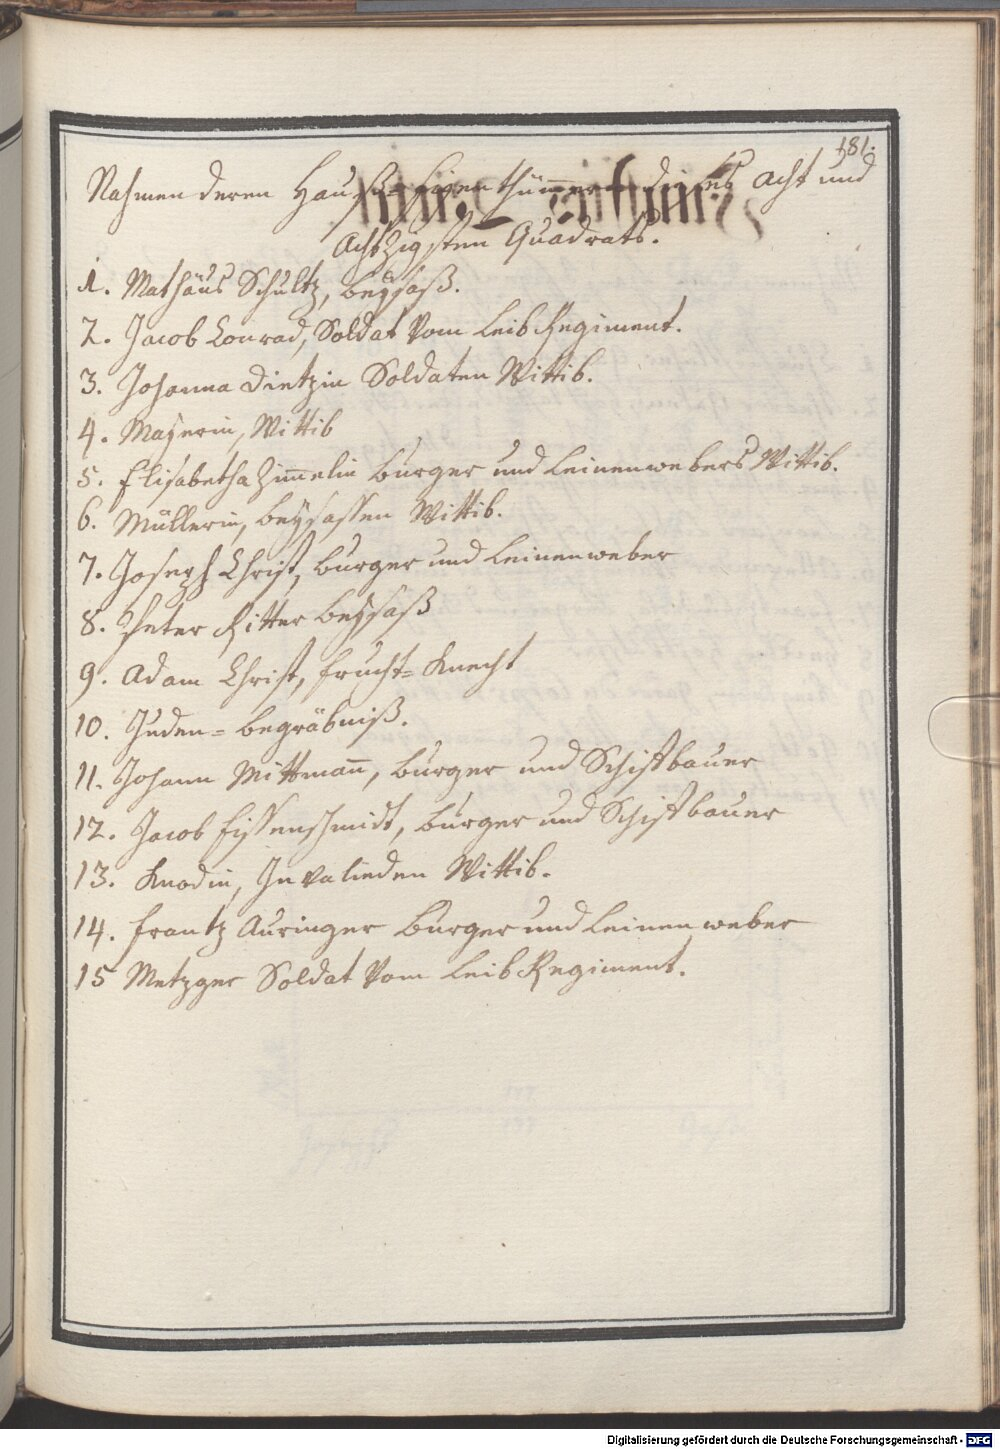 181.
Nahmen deren Hauß=Eigenthümmer dieses acht und
Achtzigsten Quadrats.
1. Mathäus Schultz, beÿsaß.
2. Jacob Conrad, Soldat Vom Leib Regiment.
3. Johanna Dietzin Soldaten Wittib.
4. Maÿerin, Wittib
5. Elisabetha Zim̅elin burger und Leinenwebers Wittib.
6. Müllerin, beÿsassen Wittib.
7. Joseph Christ, burger und Leinenweber
8. Peter Ritter beÿsaß
9. Adam Christ, frucht=Knecht
10. Juden=begräbniß.
11. Johann Mittman̅, burger und Schiffbauer
12. Jacob Eissenschmidt, burger und Schiffbauer
13. Knodin, Invalieden Wittib.
14. Frantz Auringer burger und Leinenweber
15 Metzger Soldat Vom Leib Regiment.
Digitalisierung gefördert durch die Deutsche Forschungsgemeinschaft - DFG